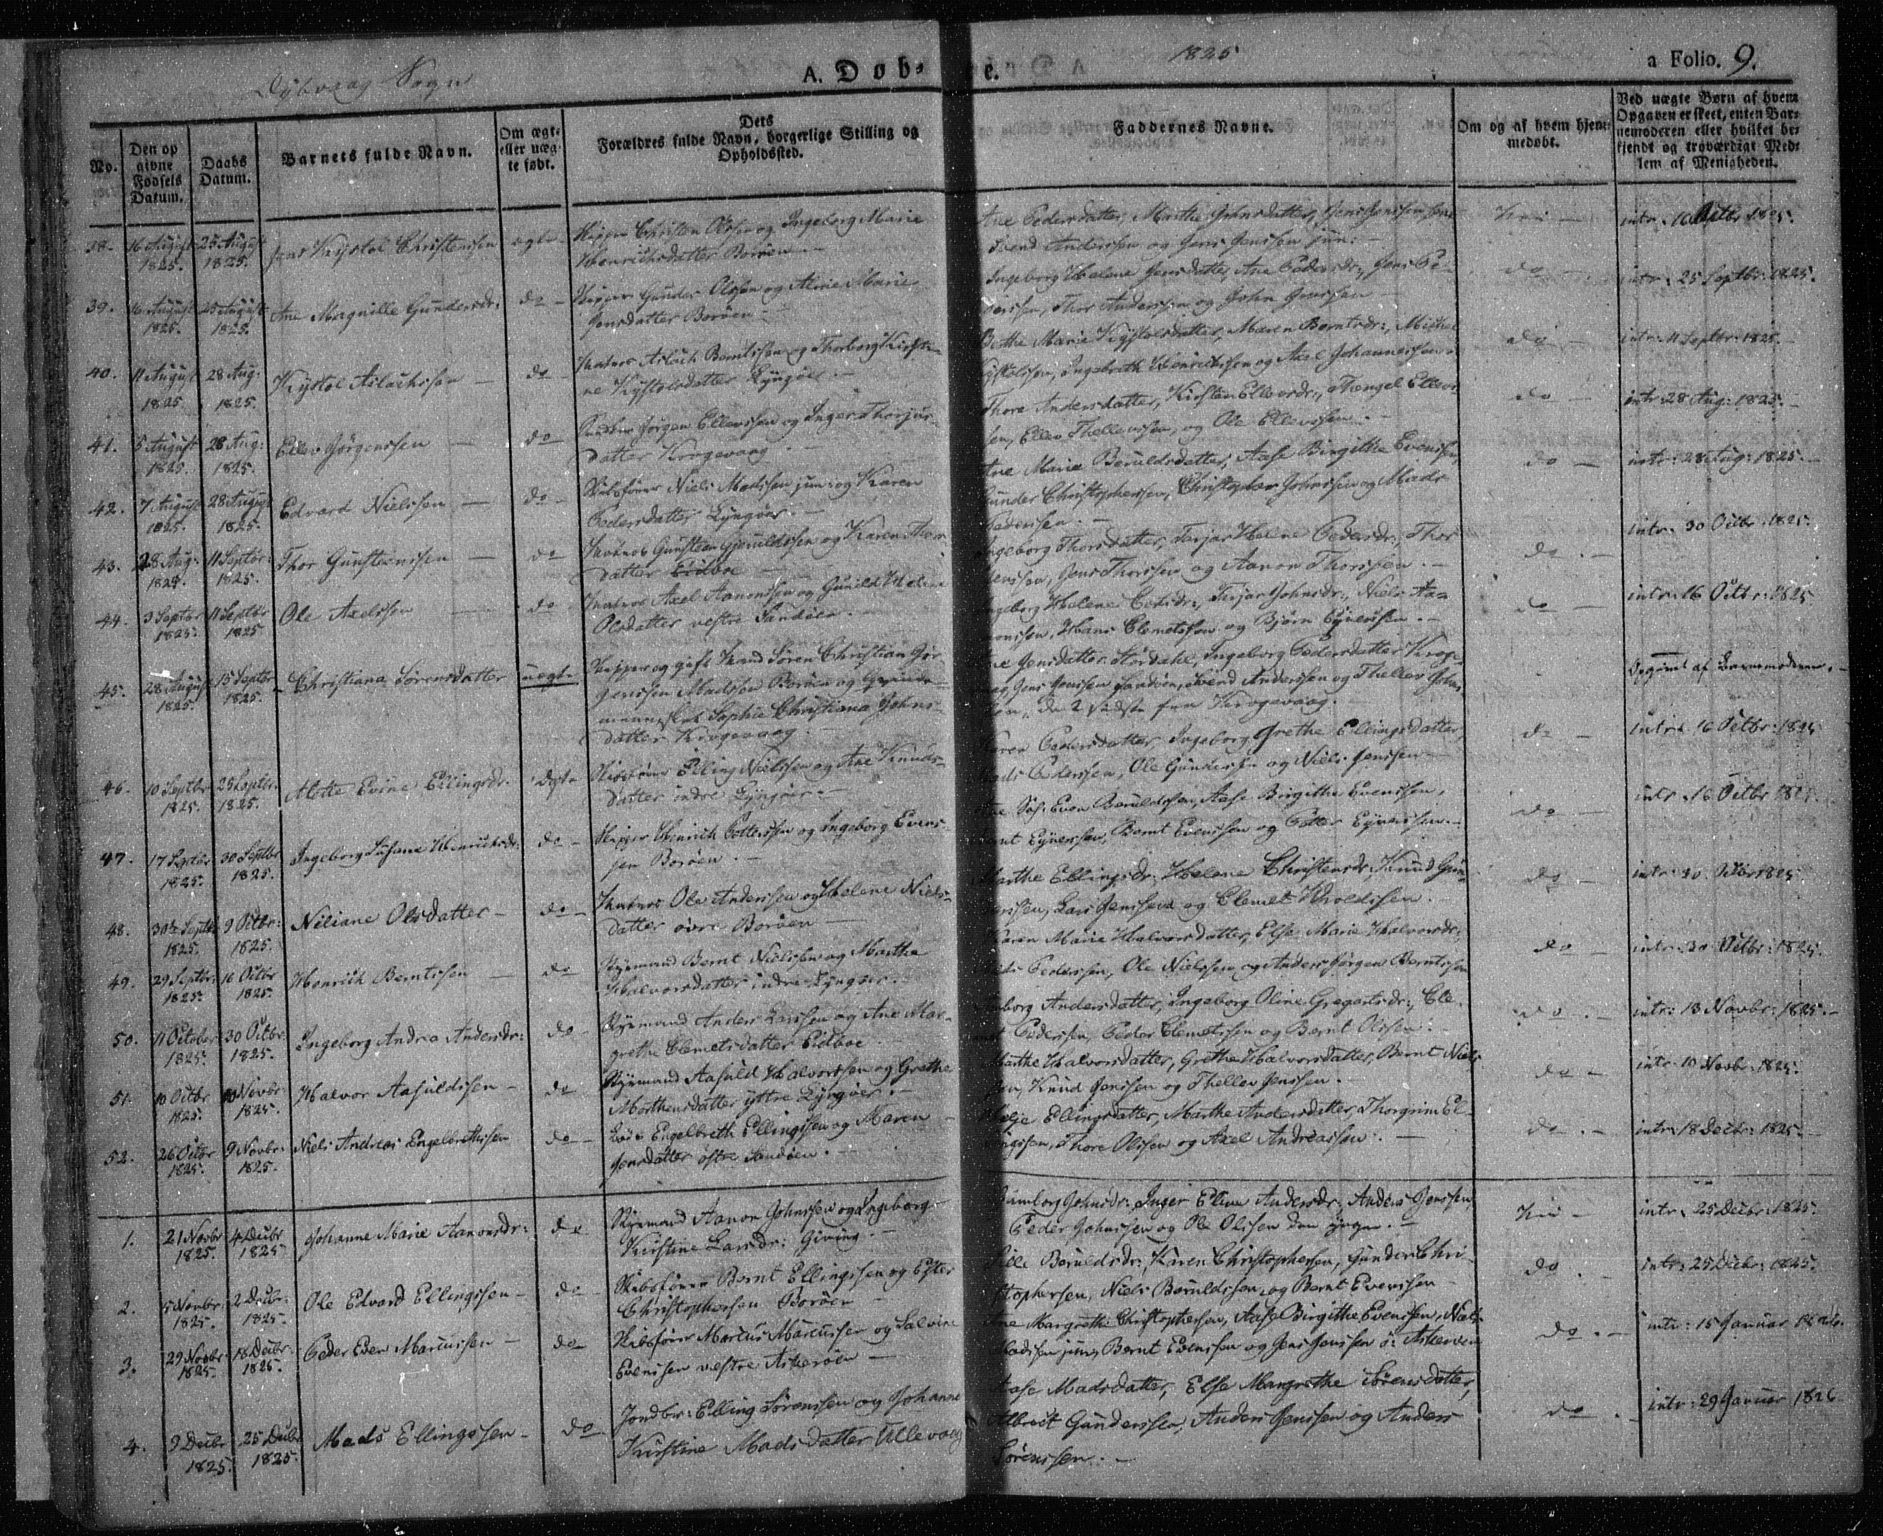 Dybvaag Sogn
A. Døb-
e.
1825
a Folio. 9.
No.
Den op
givne
Fødsels
Datum.
Daabs
Datum.
Barnets fulde Navn.
Om ægte
eller uæg-
te født.
Dets
Forældres fulde Navn, borgerlige Stilling og
Opholdssted.
Faddernes Navne.
Om og af hvem hjem-
medøbt.
Ved uægte Børn af hvem
Opgaven er skeet, enten Bar-
nemoderen eller hvilket be-
kjendt og troværdigt Med-
lem af Menigheden.
38. 16 August 25 August Jens Kystol Christensen ægte Skipper Christen Olsen og Ingeborg Marie
1825. 1825. Henrichsdatter Borøen
Ane Pedersdatter, Marthe Johnsdatter, Jens Jenssen
Svend Anderssen og Jens Jenssen jun:
intr: 16 Octbr 1825.
39. 25 August Ane Margnille Gundersdr: do Gunder Olssen og Aline Marie
1825. 1825. Jensdatter Borøen
Ingeborg Helene Jensdatter, Ane Pedersdr:, Jens Pe-
derssen, Thor Anderssen og John Jenssen
do intr: 25 Septbr: 1825.
40. 11 August 28 Aug: Kystol Aslachssen do Matros Aslach Berntssen og Thorborg Kirsti-
1825 1825. ne Kystolsdatter Lyngøer.
Marie Kystolsdatter, Maren Berntsdr:, Michel
Kystolssen, Ingebreth Henrichssen og Axel Johannessen
do intr: 11 Septbr: 1825.
41. 5 August 28 Aug: Ellev Jørgenssen do Jørgen Ellevssen og Inger Thorjus-
1825. 1825. datter Krogevaag
Thore Andersdatter, Kirsten Ellevsdr:, Ellev-
sen, Ellev Thellevssen, og Ole Ellevssen.
do intr: 28 Aug: 1825.
42. 7 August 28 August Edvard Nielssen do Skibsfører Niels Madssen jun: og Karen
1825. 1825. Pedersdatter Lyngøer.
Ane Marie Beruldsdatter, Aase Birgithe Evenssen,
Gunder Christophersen, Christopher Johnssen og Mads
Pederssen.
do intr: 28 Aug: 1825.
43. 28 Aug: 11 Septbr: Thor Gunstenssen do Matros Gunsten Gjeruldssen og Karen Thors-
1825. 1825. datter Eidboe
Ingeborg Thorsdatter, Terjer Helene Pedersdr:, Thor
Jens Thorssen og Aanon Thorssen.
do intr: 30 Octbr: 1825.
44. 3 Septbr 11 Septbr Ole Axelssen do Matros Axel Aanonssen og Gunild Helene
1825. 1825 Olsdatter vestre Sandøen.
Ingeborg Helene Johnsdr:, Niels Aa-
nonssen, Hans Clemetssen og Bjørn Eyverssen.
do intr: 16 Octbr: 1825
45. 28 August 15 Septbr Christiana Sørensdatter uægte Skipper og gift Mand Søren Christian Jør-
1825. 1825. genssen Madssen Borøen og
Sophie Christiana Johns-
datter Krogevaag.
Ane Jensdatter Stordahl, Ingeborg Pedersdatter Krog-
vaag, Jens Jenssen Sandøen, Svend Anderssen og Thellev John-
sen, de 2 sidste fra Krogevaag.
Opgivet af Barnemoderen.
46. 10 Septbr 25 Septbr Mette Evine Ellingsdr. ægte Skibsfører Elling Nielssen og Ane Knuds-
1825. 1825. datter indre Lyngøer.
Karen Pedersdatter, Ingeborg Grethe Ellingsdatter,
Mads Pederssen, Ole Gunderssen og Niels Jenssen
do intr: 16 Octbr: 1825
47. 17 Septbr 30 Septbr Ingeborg Susane Henrichsdr: do Skipper Henrich Petterssen og Ingeborg Evens-
1825. 1825. sen Borøen.
Even Beruldssen, Aase Birgithe Evenssen,
Bernt Eyverssen, Bernt Evenssen og Petter Eyverssen.
do intr: 16 Octbr 1825.
48. 30te Septbr 9 Octbr: Niliane Olsdatter do Matros Ole Anderssen og Helene Niels-
1825. 1825. datter øvre Borøen
Marthe Ellingsdr:, Helene Christensdr:, Knud Gun-
derssen, Lars Jenssen og Clemet
do intr: 30 Octbr 1825
49. 29 Septbr: 16 Octbr Henrich Berntssen do Styrmand Bernt Nielssen og Marthe
1825. 1825. Halvorsdatter indre Lyngøer.
Karen Marie Halvorsdatter, Else Marie Halvorsdr:,
Niels Pederssen, Ole Nielssen og Anders Jørgen Berntssen
do intr: 30 Octbr: 1825.
50. 11 October 30 Octbr Ingeborg Andrea Andersdr: do Styrmand Anders Larssen og Ane Mar-
1825. 1825. grethe Clemetsdatter Eidboe.
Andersdatter, Ingeborg Oline Gregersdr:, Cle-
met Pederssen, Peder Clemetssen og Bernt Olssen.
do intr: 13 Novbr: 1825.
51. 10 Octbr 10 Novbr: Halvor Aasuldssen do Styrmand Aasuld Halvorssen og Grethe
1825. 1825. Morthensdatter yttre Lyngøer.
Marthe Halvorsdatter, Grethe Halvorsdatter, Bernt Niels-
sen, Knud Jenssen og Thellev Jenssen.
do intr: 10 Novbr: 1825.
52. 26 Octbr 9 Novbr: Niels Andreas Engelbrethssen do Engelbreth Ellingssen og Maren
1825. 1825. Jensdatter østre Sandøen.
Helje Ellingsdatter, Marthe Andersdatter, Thorgrim El-
lingssen, Thore Olssen og Axel Andreassen.
do intr: 18 Decbr: 1825.
1. 21 Novbr 4 Decbr Johanne Marie Aanonsdr: do Styrmand Aanon Johnssen og Ingeborg
1825. 1825. Kirstine Larsdr: Giving.
Johnsdr:, Inger Eline Andersdr:, Anders Jenssen,
Peder Johnssen og Ole Olssen den yngre.
intr: 25 Decbr: 1825.
2. 5 Novbr: 2 Decbr: Ole Edvard Ellingssen do Skibsfører Bernt Ellingssen og Ester
1825. 1825. Christophersen Borøen
Beruldsdr:, Karen Christophersen, Gunder Chri-
stophersen, Niels Beruldssen og Bernt Evenssen
do intr: 25 Decbr: 1825.
3. 29 Novbr: 18 Decbr: Peder Even Marcussen do Skibsfører Marcus Marcussen og Salvine
1825. 1825. Evenssen vestre Askerøen
Ane Margrethe Christophersen, Aase Birgithe Evenssen, Niels
Madssen jun:, Bernt Evenssen og Jens Jenssen ø: Askerøen
do intr: 15 Januar 1826.
4. 9 Decbr 25 Decbr Mads Ellingssen do Jordbr: Elling Sørenssen og Johanne
1825. 1825. Kirstine Madsdatter Ullevaag
Aase Madsdatter, Else Margrethe Sørensdatter,
Albret Gunderssen, Anders Jenssen og Anders
Sørenssen.
do intr: 29 Januar 1826